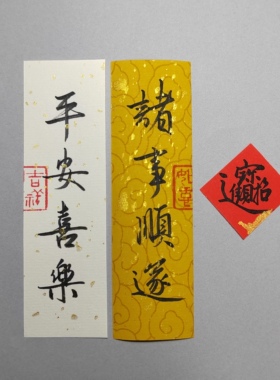 平安喜樂
吉祥
諸事順遂
招財進寶